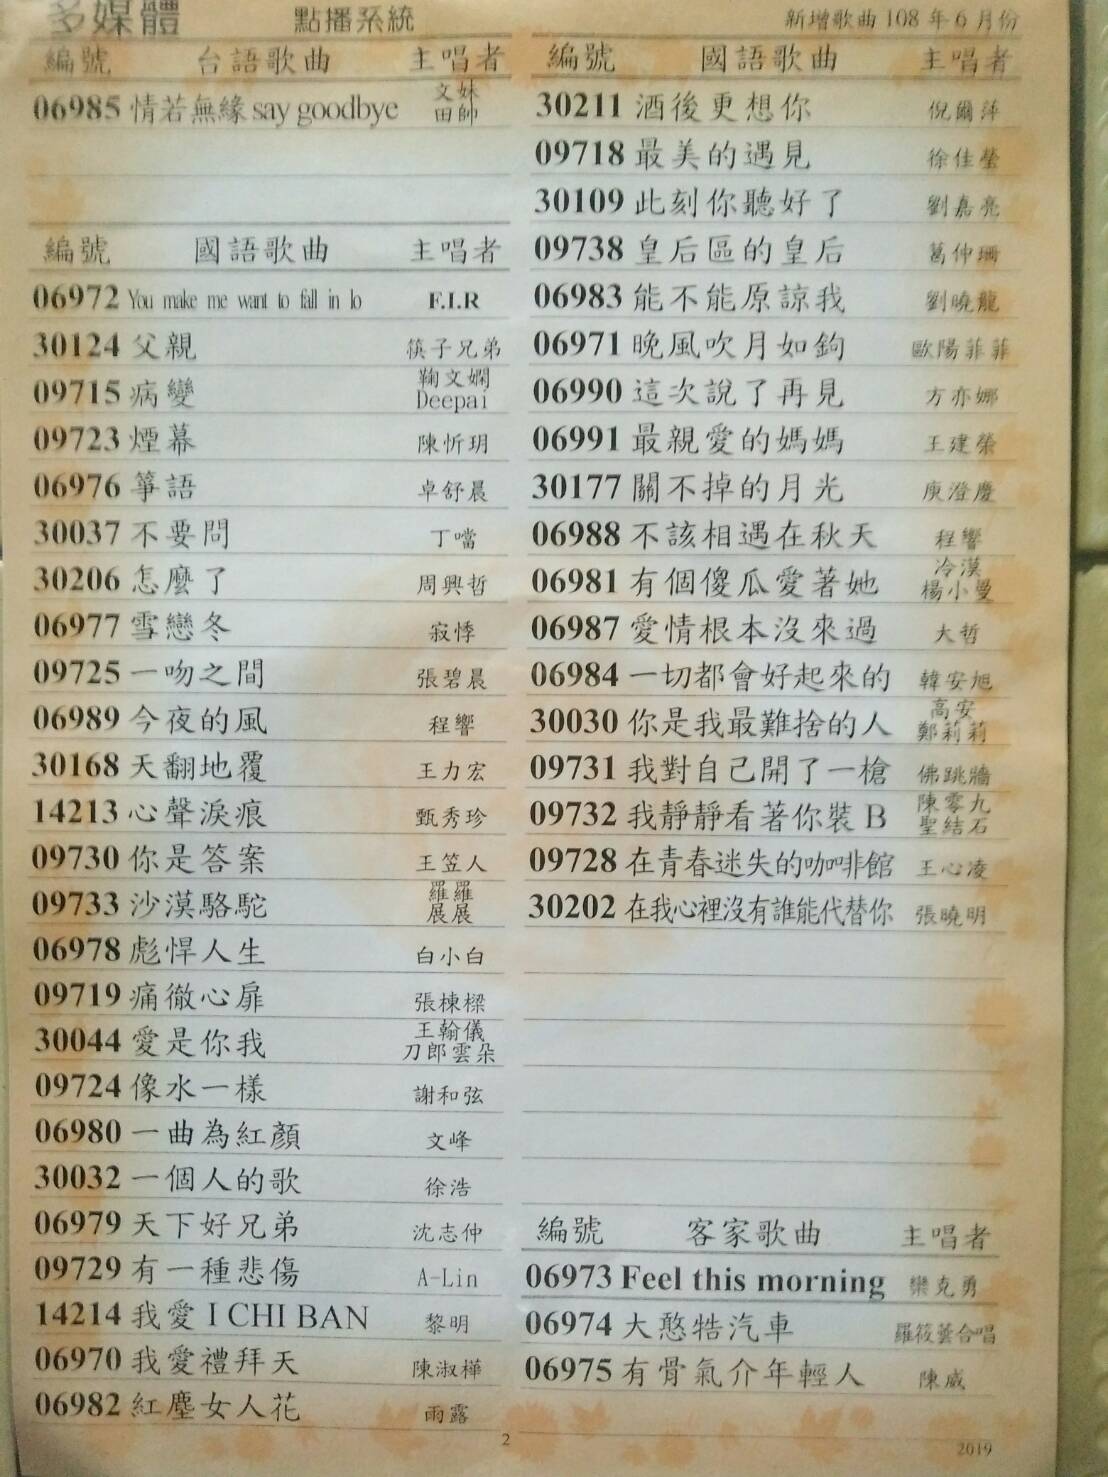 多媒體 點播系統 新增歌曲 108 年 6 月份
編號 台語歌曲 主唱者
06985 情若無緣 say goodbye 文妹 田帥
編號 國語歌曲 主唱者
06972 You make me want to fall in lo F.I.R
30124 父親 筷子兄弟
09715 病變 鞠文嫻 Deepai
09723 煙幕 陳忻玥
06976 箏語 卓舒晨
30037 不要問 丁噹
30206 怎麼了 周興哲
06977 雪戀冬 寂悸
09725 一吻之間 張碧晨
06989 今夜的風 程響
30168 天翻地覆 王力宏
14213 心聲淚痕 甄秀珍
09730 你是答案 王笠人
09733 沙漠駱駝 羅羅 展展
06978 彪悍人生 白小白
09719 痛徹心扉 張棟樑
30044 愛是你我 王翰儀 刀郎雲朵
09724 像水一樣 謝和弦
06980 一曲為紅顏 文峰
30032 一個人的歌 徐浩
06979 天下好兄弟 沈志仲
09729 有一種悲傷 A-Lin
14214 我愛 I CHI BAN 黎明
06970 我愛禮拜天 陳淑樺
06982 紅塵女人花 雨露
編號 國語歌曲 主唱者
30211 酒後更想你 倪爾萍
09718 最美的遇見 徐佳瑩
30109 此刻你聽好了 劉嘉亮
09738 皇后區的皇后 葛仲珊
06983 能不能原諒我 劉曉龍
06971 晚風吹月如鉤 歐陽菲菲
06990 這次說了再見 方亦娜
06991 最親愛的媽媽 王建榮
30177 關不掉的月光 庾澄慶
06988 不該相遇在秋天 程響
06981 有個傻瓜愛著她 冷漠 楊小曼
06987 愛情根本沒來過 大哲
06984 一切都會好起來的 韓安旭
30030 你是我最難捨的人 高安 鄭莉莉
09731 我對自己開了一槍 佛跳牆
09732 我靜靜看著你裝 B 陳零九 聖結石
09728 在青春迷失的咖啡館 王心凌
30202 在我心裡沒有誰能代替你 張曉明
編號 客家歌曲 主唱者
06973 Feel this morning 欒克勇
06974 大憨牯汽車 羅筱蓉合唱
06975 有骨氣介年輕人 陳威
2
2019